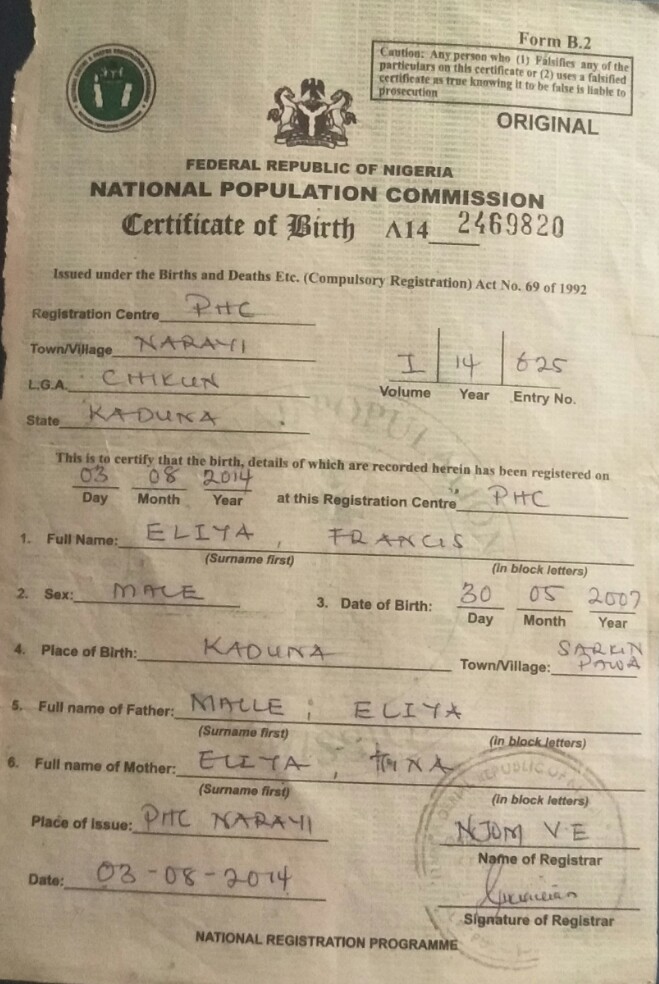 Form B.2
Caution: Any person who (1) Falsifies any of the
particulars on this certificate or (2) uses a falsified
certificate as true knowing it to be false is liable to
prosecution
ORIGINAL
FEDERAL REPUBLIC OF NIGERIA
NATIONAL POPULATION COMMISSION
Certificate of Birth A14 2469820
Issued under the Births and Deaths Etc. (Compulsory Registration) Act No. 69 of 1992
Registration Centre PHC
Town/Village NARAYI
L.G.A. CHIKUN
State KADUNA
I 14 625
Volume Year Entry No.
This is to certify that the birth, details of which are recorded herein has been registered on
03 08 2014
Day Month Year at this Registration Centre PHC
1. Full Name: ELIYA, FRANCIS
(Surname first) (in block letters)
2. Sex: MALE 3. Date of Birth: 30 05 2007
Day Month Year
4. Place of Birth: KADUNA Town/Village: SARKIN PAWA
5. Full name of Father: MALLE; ELIYA
(Surname first) (in block letters)
6. Full name of Mother: ELIYA,
(Surname first) (in block letters)
Place of Issue: PHC NARAYI
NJOM V E
Name of Registrar
Date: 03-08-2014
Signature of Registrar
NATIONAL REGISTRATION PROGRAMME